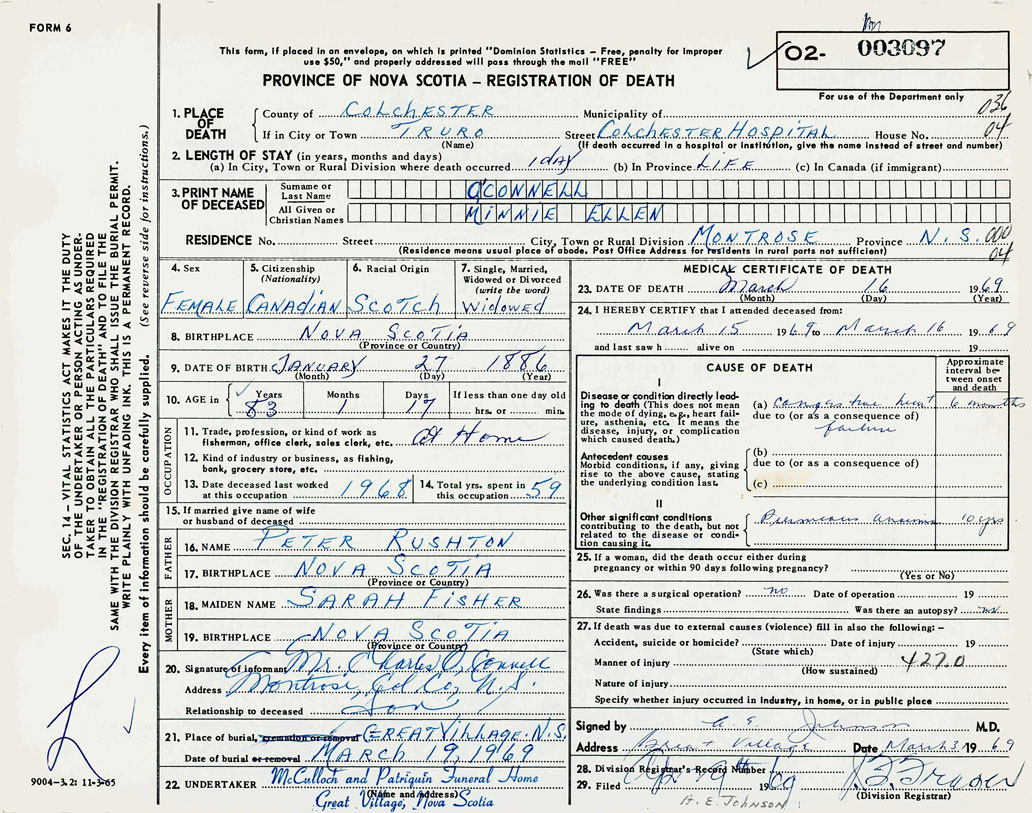 FORM 6
This form, if placed in an envelope, on which is printed "Dominion Statistics – Free, penalty for improper
use $50," and properly addressed will pass through the mail "FREE"
PROVINCE OF NOVA SCOTIA – REGISTRATION OF DEATH
02- 003097
For use of the Department only
036
04
1. PLACE OF DEATH County of COLCHESTER Municipality of
If in City or Town TRURO Street COLCHESTER HOSPITAL House No.
(Name) (If death occurred in a hospital or institution, give the name instead of street and number)
2. LENGTH OF STAY (in years, months and days)
(a) In City, Town or Rural Division where death occurred 1 day (b) In Province LIFE (c) In Canada (if immigrant)
3. PRINT NAME OF DECEASED
Surname or Last Name O'CONNELL
All Given or Christian Names MINNIE ELLEN
RESIDENCE No. Street City, Town or Rural Division MONTROSE Province N.S. 000
04
(Residence means usual place of abode. Post Office Address for residents in rural parts not sufficient)
4. Sex FEMALE
5. Citizenship (Nationality) CANADIAN
6. Racial Origin SCOTCH
7. Single, Married, Widowed or Divorced (write the word) WIDOWED
8. BIRTHPLACE NOVA SCOTIA
(Province or Country)
9. DATE OF BIRTH JANUARY 27 1886
(Month) (Day) (Year)
10. AGE in Years 83 Months 1 Days 17 If less than one day old hrs. or min.
OCCUPATION
11. Trade, profession, or kind of work as fisherman, office clerk, sales clerk, etc. At Home
12. Kind of industry or business, as fishing, bank, grocery store, etc.
13. Date deceased last worked at this occupation 1968
14. Total yrs. spent in this occupation 59
15. If married give name of wife or husband of deceased
FATHER
16. NAME PETER RUSHTON
17. BIRTHPLACE NOVA SCOTIA
(Province or Country)
MOTHER
18. MAIDEN NAME SARAH FISHER
19. BIRTHPLACE NOVA SCOTIA
(Province or Country)
20. Signature of informant Mr. Charles O'Connell
Address Montrose, Col Co, N.S.
Relationship to deceased Son
21. Place of burial, cremation or removal GREAT VILLAGE. N.S.
Date of burial or removal MARCH 19, 1969
22. UNDERTAKER McCulloch and Patriquin Funeral Home
(Name and address)
Great Village, Nova Scotia
MEDICAL CERTIFICATE OF DEATH
23. DATE OF DEATH March 16 1969
(Month) (Day) (Year)
24. I HEREBY CERTIFY that I attended deceased from:
March 15 1969 to March 16 1969
and last saw h alive on 19
CAUSE OF DEATH
Approximate interval between onset and death
I
Disease or condition directly leading to death (This does not mean the mode of dying, e.g., heart failure, asthenia, etc. It means the disease, injury, or complication which caused death.)
(a) congestive heart 6 months
due to (or as a consequence of)
failure
Antecedent causes
Morbid conditions, if any, giving rise to the above cause, stating the underlying condition last.
(b)
due to (or as a consequence of)
(c)
II
Other significant conditions contributing to the death, but not related to the disease or condition causing it.
Pernicious anemia 10 yrs
25. If a woman, did the death occur either during pregnancy or within 90 days following pregnancy?
(Yes or No)
26. Was there a surgical operation? no Date of operation 19
State findings Was there an autopsy? no
27. If death was due to external causes (violence) fill in also the following: –
Accident, suicide or homicide? Date of injury 19
(State which)
Manner of injury 427.0
(How sustained)
Nature of injury
Specify whether injury occurred in Industry, in home, or in public place
Signed by A. E. Johnson M.D.
Address Great Village Date March 3, 1969
28. Division Registrar's Record Number
29. Filed Apr 9th 1969
(Division Registrar)
A. E. JOHNSON
SEC. 14 – VITAL STATISTICS ACT MAKES IT THE DUTY
OF THE UNDERTAKER OR PERSON ACTING AS UNDER-
TAKER TO OBTAIN ALL THE PARTICULARS REQUIRED
IN THE "REGISTRATION OF DEATH" AND TO FILE THE
SAME WITH THE DIVISION REGISTRAR WHO SHALL ISSUE THE BURIAL PERMIT.
WRITE PLAINLY WITH UNFADING INK. THIS IS A PERMANENT RECORD.
Every item of information should be carefully supplied. (See reverse side for instructions.)
9004-3.2: 11-3-65